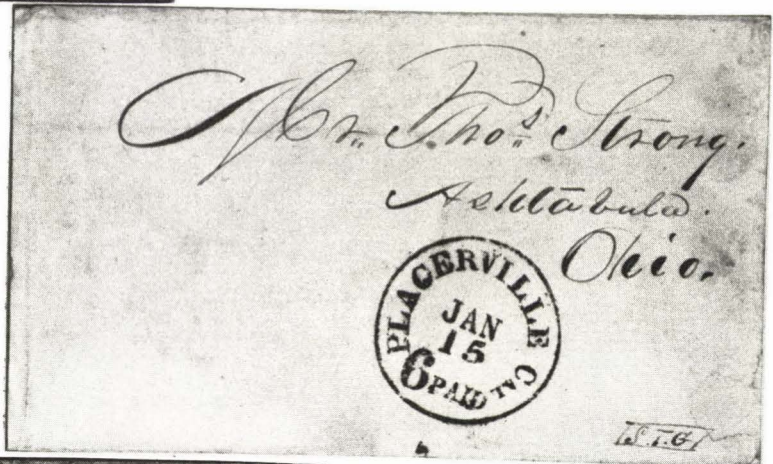 Mr. Thos. Strong.
Ashtabula.
Ohio.
PLACERVILLE CAL
JAN
15
6 PAID
S.T.G